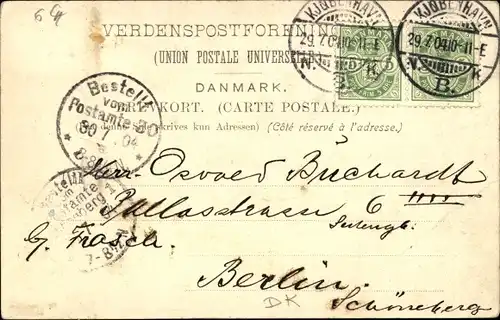 VERDENSPOSTFORENINGEN
(UNION POSTALE UNIVERSELLE)
DANMARK.
BREVKORT. (CARTE POSTALE.)
(Paa denne Side skrives kun Adressen) (Côté réservé à l'adresse.)
KJØBENHAVN
29.7.04 10-11-E
N. K
KJØBENHAVN
29.7.04 10-11-E
N. B
Bestellt
vom
Postamte
30/7 04
Herr Osvald Buchardt
Pallasstrasse 6
b/ Frosch.
Berlin.
Schöneberg
DK